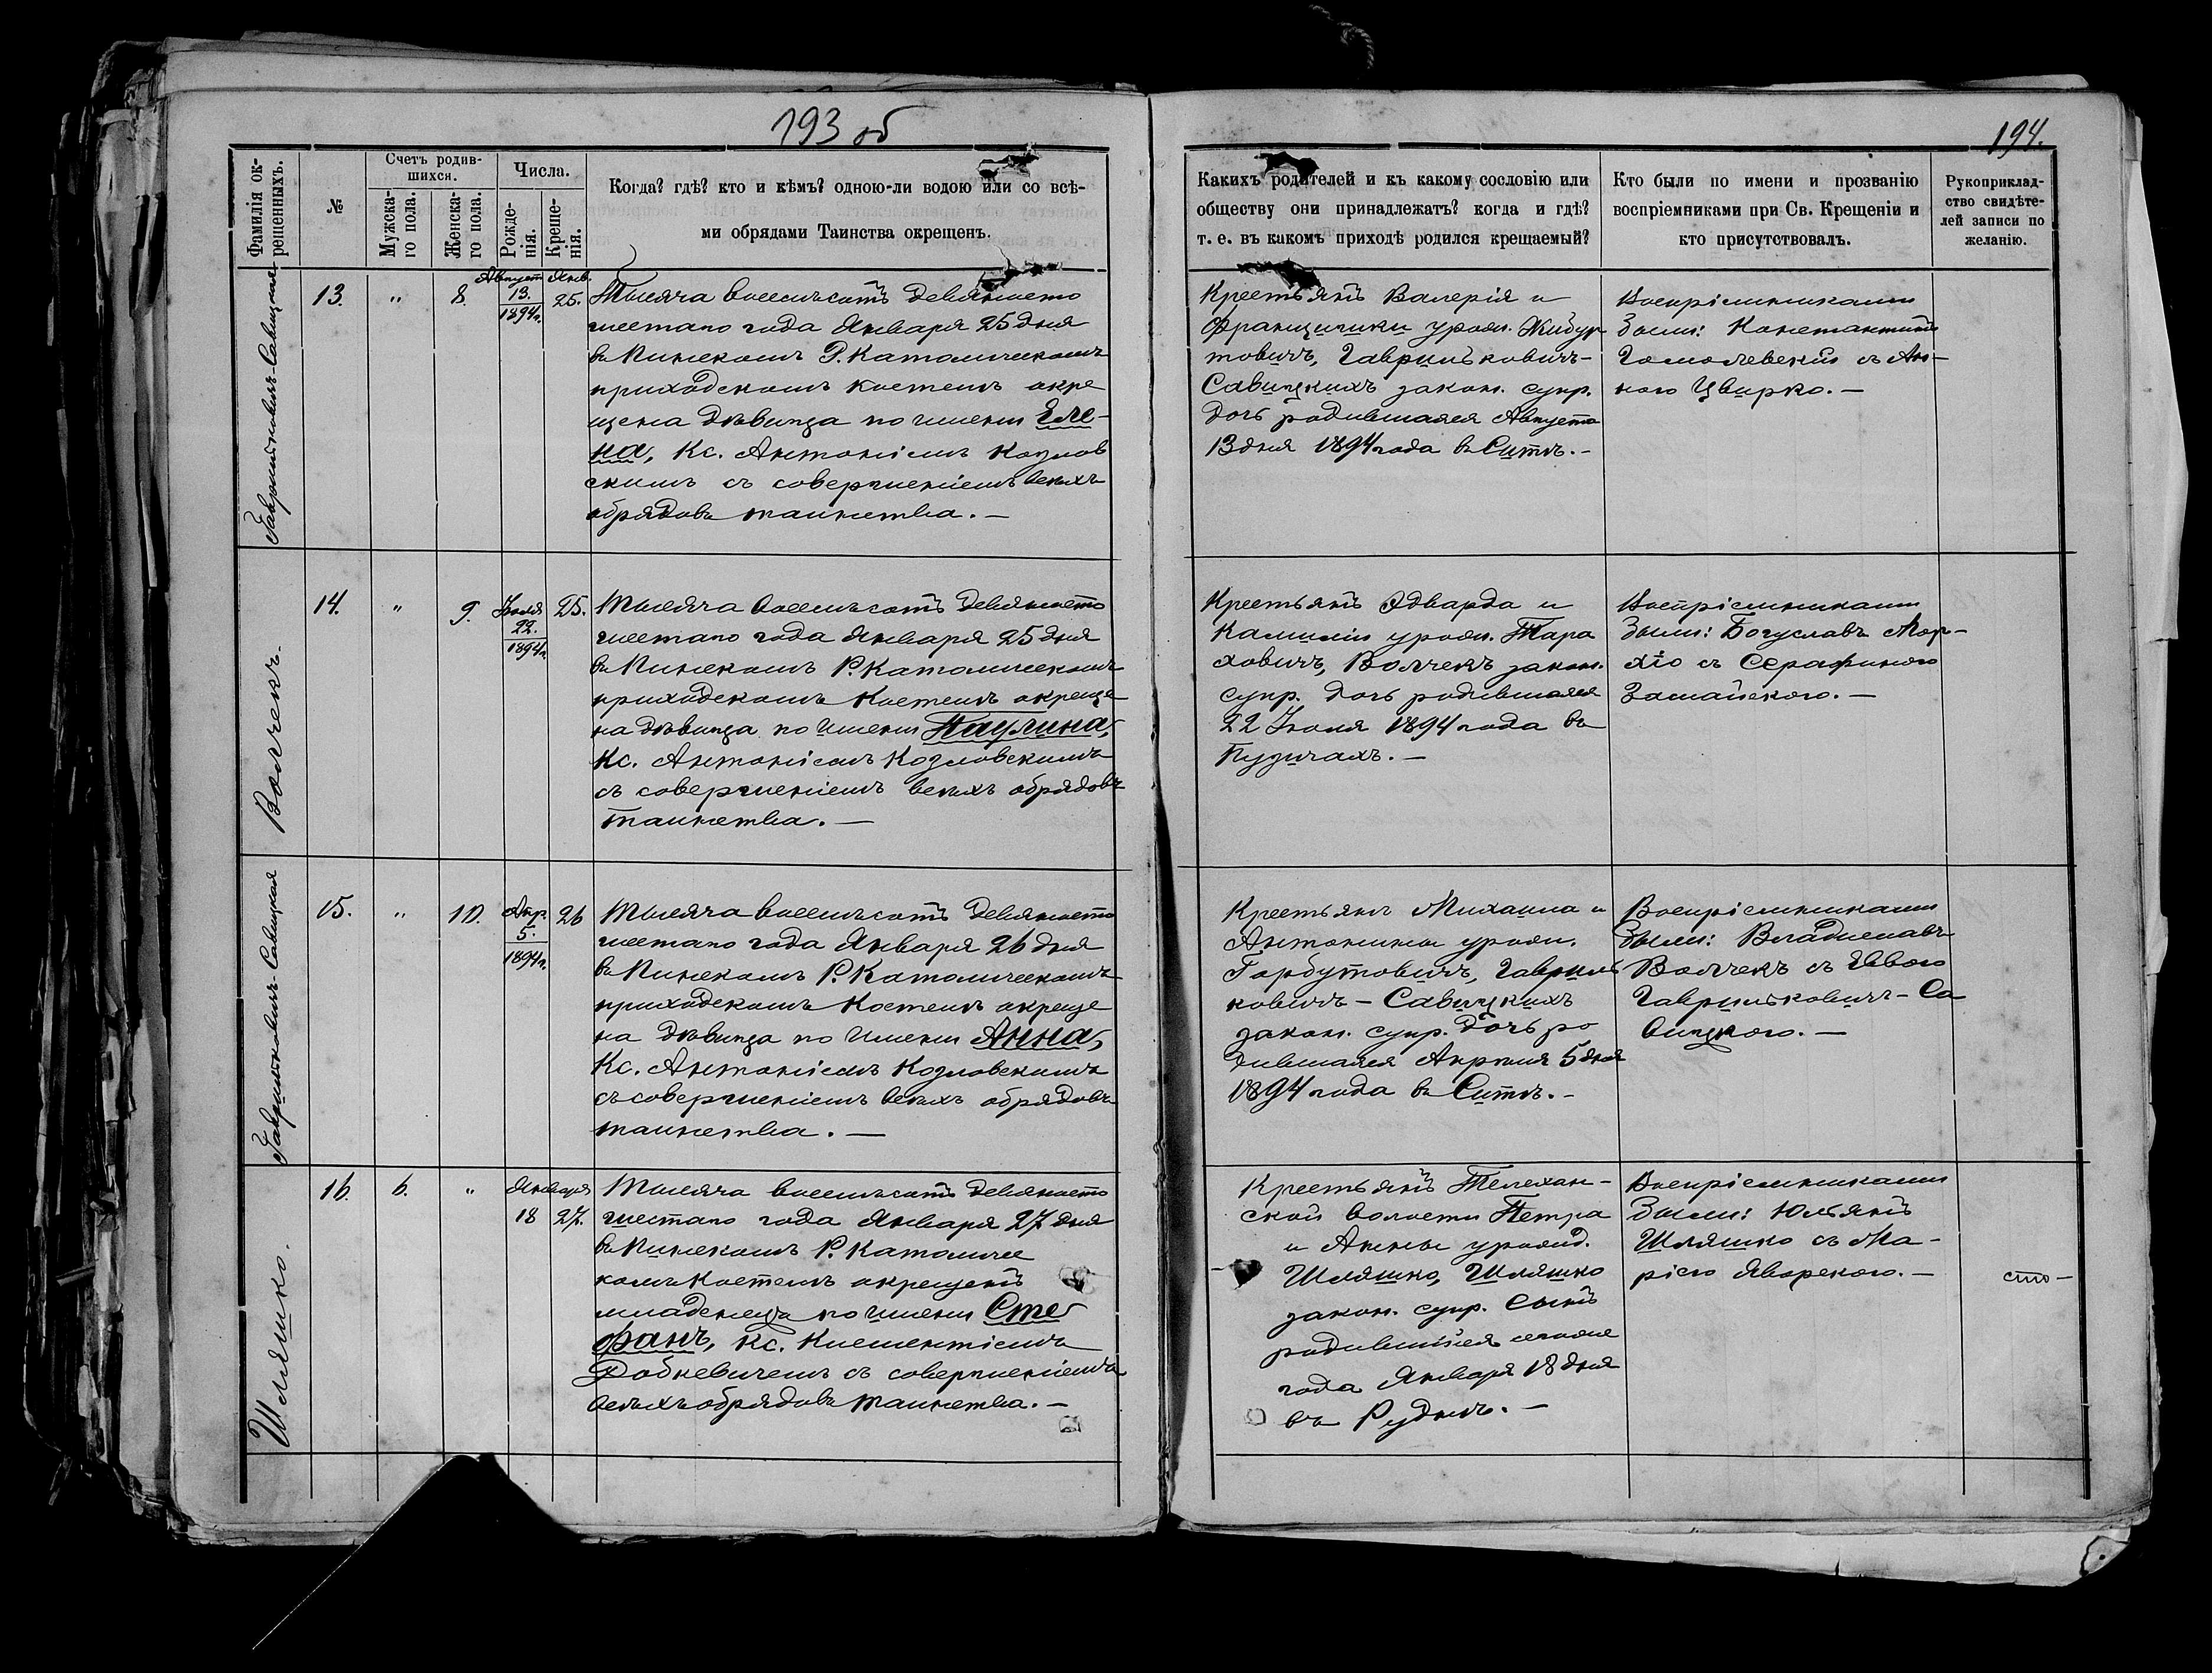 193 об
194.
Фамилія ок-
рещенныхъ.
№
Счетъ родив-
шихся.
Мужска-
го пола.
Женска-
го пола.
Числа.
Рожде-
нія.
Креще-
нія.
Когда? гдѣ? кто и кѣмъ? одною-ли водою или со всѣ-
ми обрядами Таинства окрещенъ.
Какихъ родителей и къ какому сословію или
обществу они принадлежатъ? когда и гдѣ?
т. е. въ какомъ приходѣ родился крещаемый?
Кто были по имени и прозванію
воспріемниками при Св. Крещеніи и
кто присутствовалъ.
Рукоприклад-
ство свидѣте-
лей записи по
желанію.
Гаврильковичъ-Савицкая
13.
"
8.
Август
13.
1894г.
Янв.
25.
Тысяча восемьсотъ девяносто
шестаго года Января 25 дня
въ Пинскомъ Р. Католическомъ
приходскомъ костелѣ окре
щена дѣвица по имени Еле-
на, Кс. Антоніемъ Козлов
скимъ съ совершеніемъ всѣхъ
обрядовъ таинства. —
Крестьянъ Валерія и
Францишки урожд. Жибур
товичъ, Гаврильковичъ-
Савицкихъ закон. супр.
дочь родившаяся Августа
13 дня 1894 года въ Ситѣ. -
Воспріемниками
были: Константинъ
Гомолевскій съ Ан-
ною Цвирко. —
Волчекъ.
14.
"
9.
Іюля
22.
1894г.
25.
Тысяча восемьсотъ девяносто
шестаго года Января 25 дня
въ Пинскомъ Р. Католическомъ
приходскомъ Костелѣ окреще
на дѣвица по имени Паулина,
Кс. Антоніемъ Козловскимъ
съ совершеніемъ всѣхъ обрядовъ
таинства. —
Крестьянъ Эдварда и
Камиліи урожд. Тара
ховичъ, Волчекъ закон.
супр. дочь родившаяся
22 Іюля 1894 года въ
Пузичахъ. —
Воспріемниками
были: Богуславъ Мор-
хіо съ Серафиною
Замайскою. —
Гаврильковичъ-Савицкая
15.
"
10.
Апр.
5.
1894г.
26
Тысяча восемьсотъ девяносто
шестаго года Января 26 дня
въ Пинскомъ Р. Католическомъ
приходскомъ Костелѣ окреще
на дѣвица по имени Анна,
Кс. Антоніемъ Козловскимъ
съ совершеніемъ всѣхъ обрядовъ
таинства. —
Крестьянъ Михаила и
Антонины урожд.
Горбутовичъ, Гавриль
ковичъ - Савицкихъ
закон. супр. дочь ро
дившаяся Апрѣля 5 дня
1894 года въ Ситѣ. -
Воспріемниками
были: Владиславъ
Волчекъ съ Евою
Гаврильковичъ-Са
вицкою. —
Шляшко.
16.
6.
"
Января
18
27.
Тысяча восемьсотъ девяносто
шестаго года Января 27 дня
въ Пинскомъ Р. Католичес
комъ Костелѣ окрещенъ
младенецъ по имени Сте
фанъ, Кс. Климентіемъ
Робкевичемъ съ совершеніемъ
всѣхъ обрядовъ таинства. —
Крестьянъ Телехан-
ской волости Петра
и Анны урожд.
Шляшко, Шляшко
закон. супр. Сынъ
родившійся сегоже
года Января 18 дня
въ Руднѣ. —
Воспріемниками
были: Юльянъ
Шляшко съ Ма-
ріею Яворскою. —